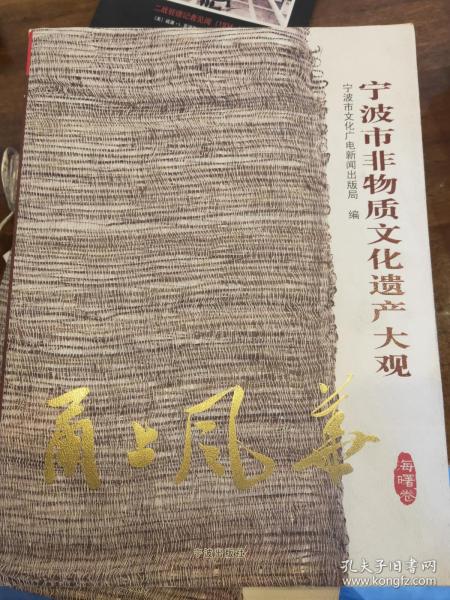 二战驻德记者见闻（1934
宁波市非物质文化遗产大观
宁波市文化广电新闻出版局 编
甬上风华
海曙卷
宁波出版社
孔夫子旧书网
www.kongfz.com